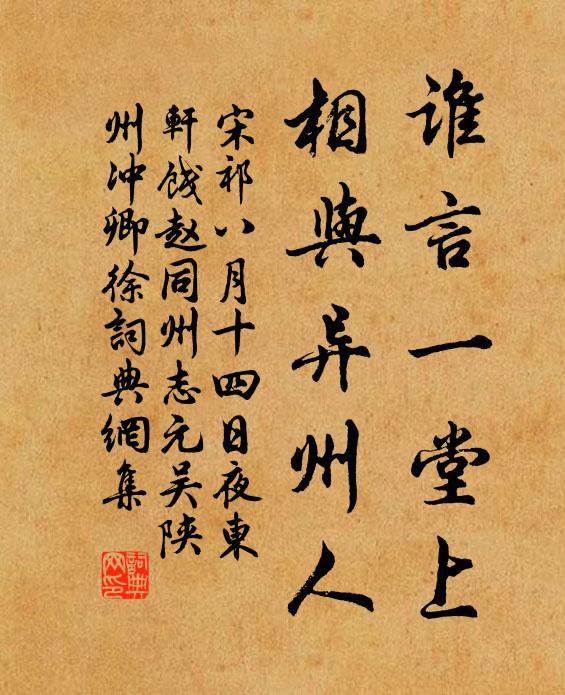 谁言一堂上
相與异州人
宋祁八月十四日夜東
軒餞赵同州志元吴陕
州冲卿徐詞典網集
詞典网印